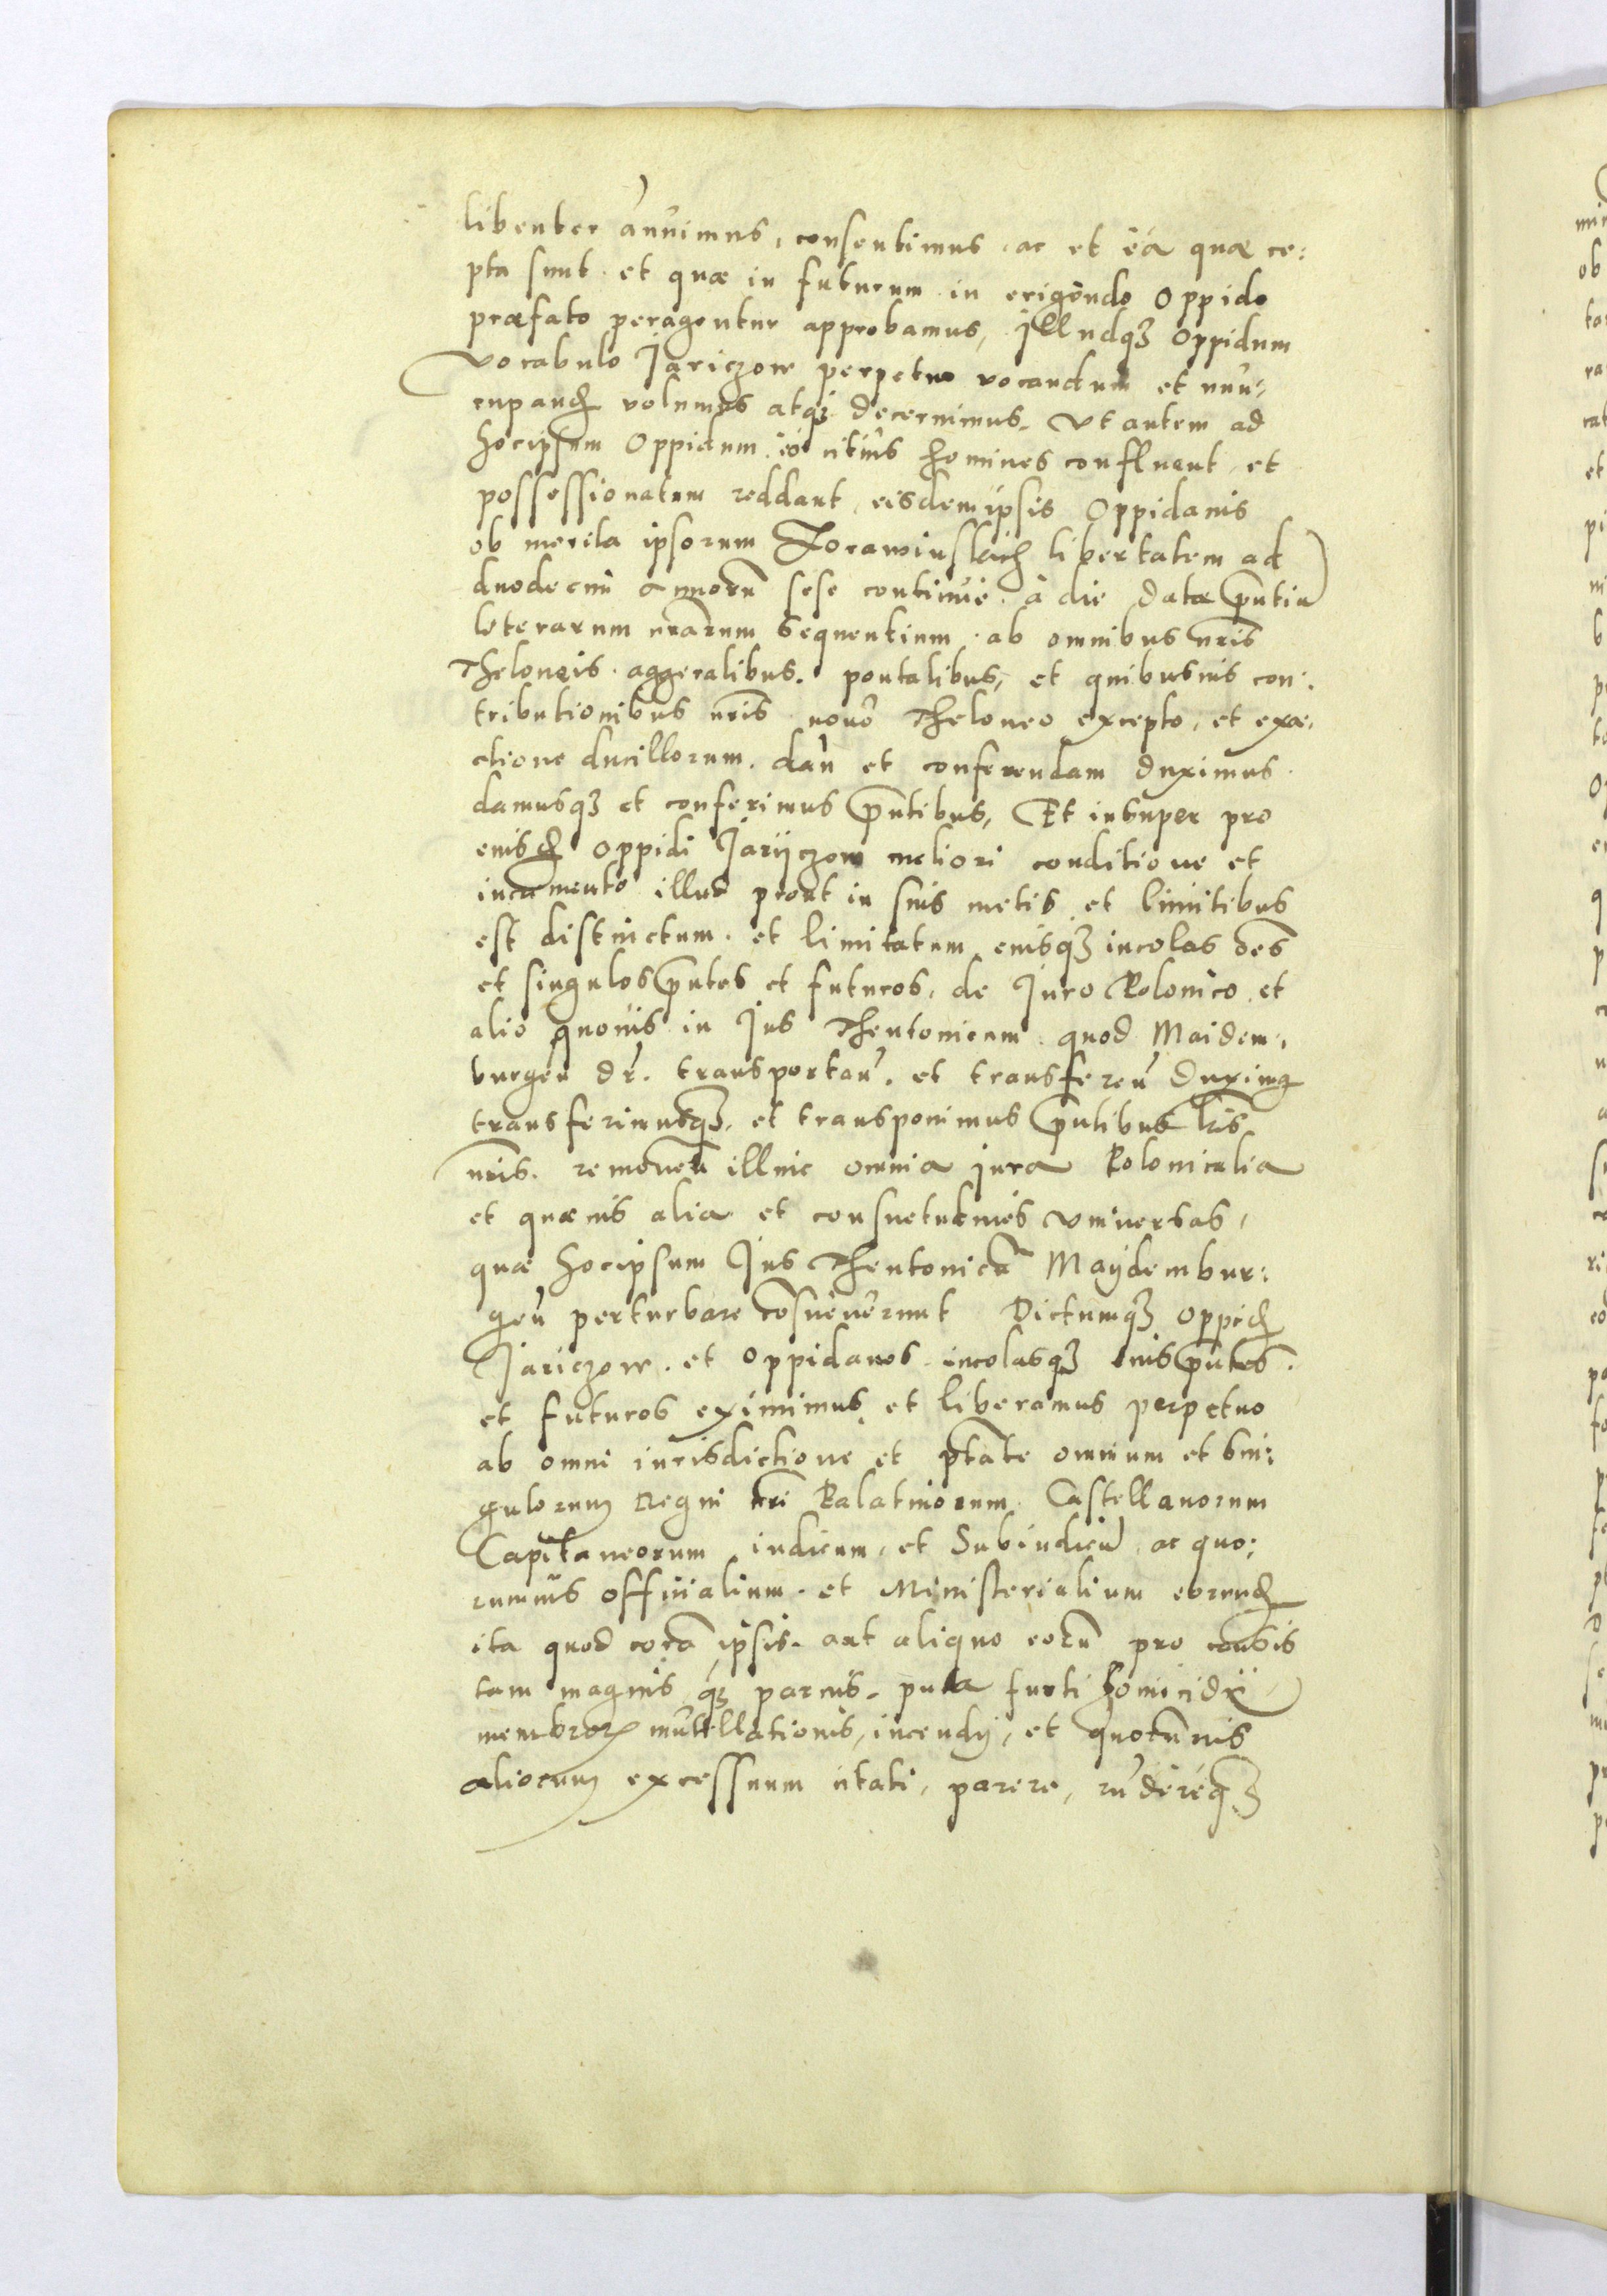 libenter annuimus, consentimus ac et ea quæ ce:
pta sunt et quæ in futurum in erigendo Oppido
præfato peragentur approbamus, Illudq3 Oppidum
vocabulo Jariczow perpetuo vocandum et nun:
cupand volumus atq3 decernimus. Ut autem ad
hocipsum Oppidum eo citius homines confluant, et
possessionatum reddant, eisdemipsis Oppidanis
ob merita ipsorum Zorawinskich libertatem ad
duodecim annorū sese continue à die datæ pñtiū
leterarum nrārum sequentium ab omnibus nrīs
Theloneis aggeralibus, pontalibus, et quibusuis con:
tributionibus nrīs nouo Theloneo excepto, et exa:
ctione ducillorum, dan̄ et conferendam duximus
damusq3 et conferimus pñtibus, Et insuper pro
eiusd Oppidi Jarijczow meliori conditione et
incremento illud prout in suis metis et limitibus
est distinctum et limitatum eiusq3 incolas oēs
et singulos pñtes et futuros, de Jure Polonico et
alio quouis in Jus Theutonicum quod Maidem:
burgen dr̄. transportan̄, et transferen̄ duxim9
transferimusq3, et transponimus pñtibus lrīs
nrīs. remouen̄ illuic omnia jura Polonicalia
et quæuis alia et consuetudnies vniuersas,
quæ hocipsum Jus Theutonicū Maydembur:
gen̄ perturbare cōsueuerunt Dictumq3 oppid
Jariczow et Oppidanos incolasq3 eius pñtes
et futuros eximimus et liberamus perpetuo
ab omni iurisdictione et ptāte omnium et sin:
gulorum Regni nrī Palatinorum Castellanorum
Capitaneorum iudicum, et Subiudicū ac quo:
rumuis officialium et Ministerialium eorund
ita quod corā ipsis aut aliquo eorū pro causis
tam magnis q3 paruis, puta furti homicidij
membror mutillationis, incendij, et quorūuis
aliorum excessuum citati, parere, rn̄dereq3